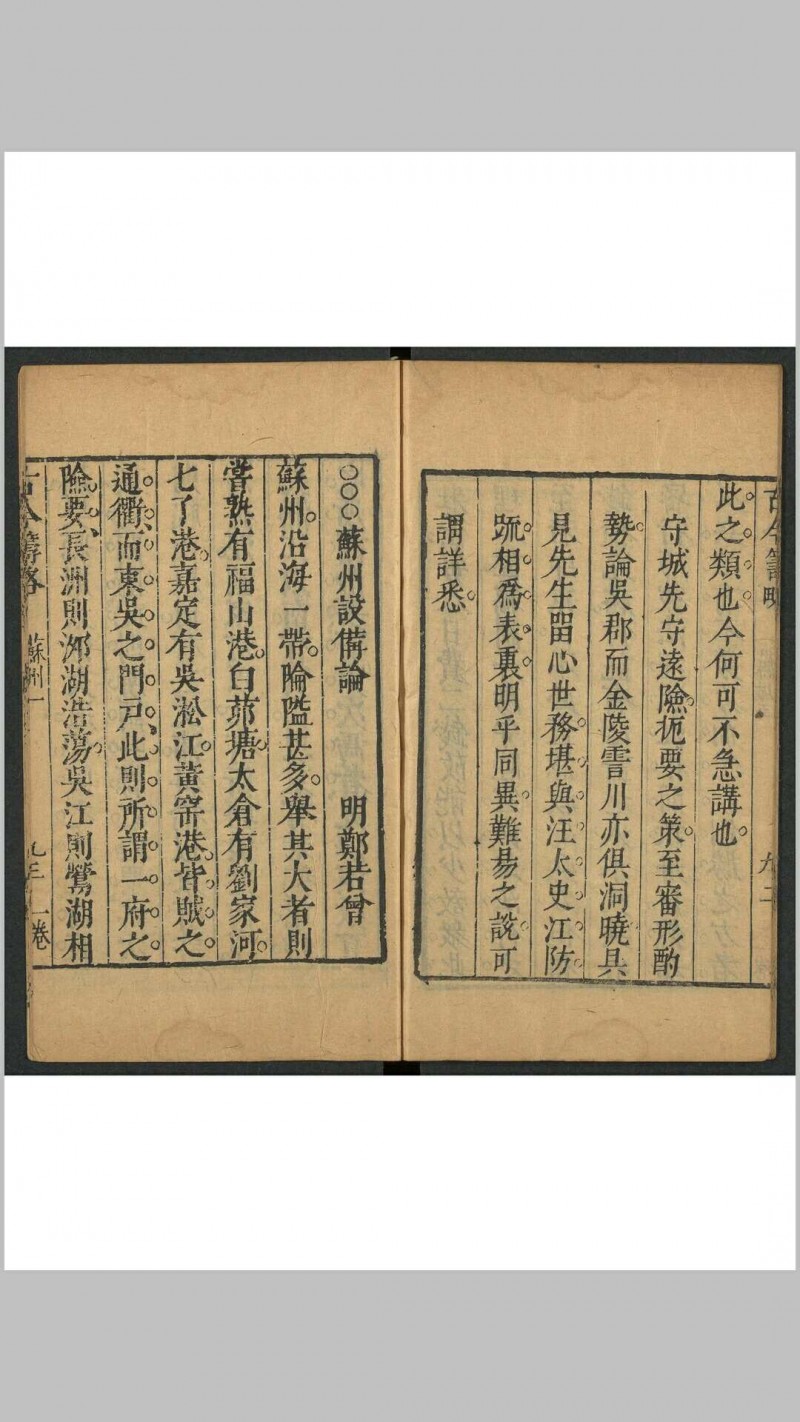 此之類也今何可不急講也
守城先守遠險扼要之策至審形酌
勢論吳郡而金陵霅川亦俱洞曉具
見先生留心世務堪與汪太史江防
䟽相為表裏明乎同異難易之說可
謂詳悉
○○○蘇州設備論 明鄭若曾
蘇州沿海一帶險隘甚多舉其大者則
嘗熟有福山港白茆塘太倉有劉家河
七了港嘉定有吳淞江黃窰港皆賊之
通衢而東吳之門戸此則所謂一府之
險要長洲則沺湖浩蕩吳江則鶯湖相
古今籌略 蘇州一 九三 一卷